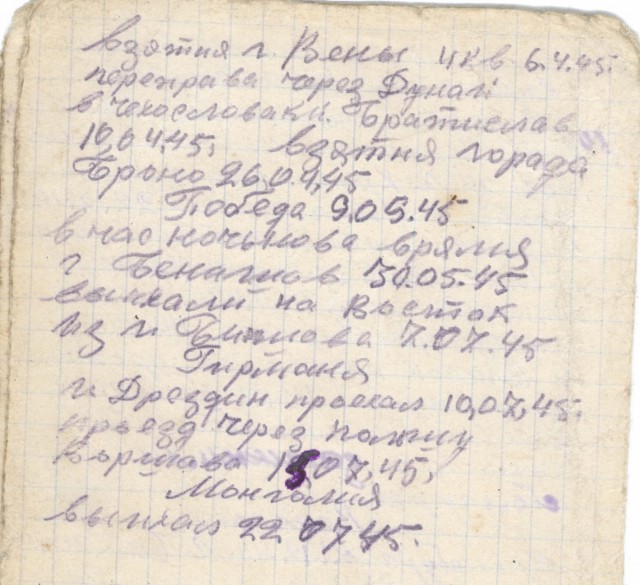 взятия г. Вены 4 к в 6.4.45.
переправа через Дунай
в чехословаки. Братислав
10,04,45, взятия города
Брно 26,04,45
Победа 9.05.45
в час ночьнова врямя
г 30.05.45
выихали на Восток
из г. 7.07.45
Гирмания
г. Дрездин проехал 10,07,45.
проезд через полшу
Варшава 15,07,45,
Монголия
выихал 22 07 45.